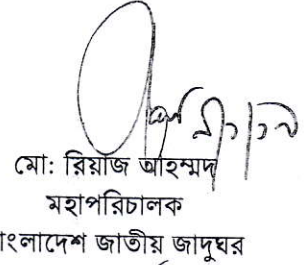 মো: রিয়াজ আহম্মদ
মহাপরিচালক
বাংলাদেশ জাতীয় জাদুঘর